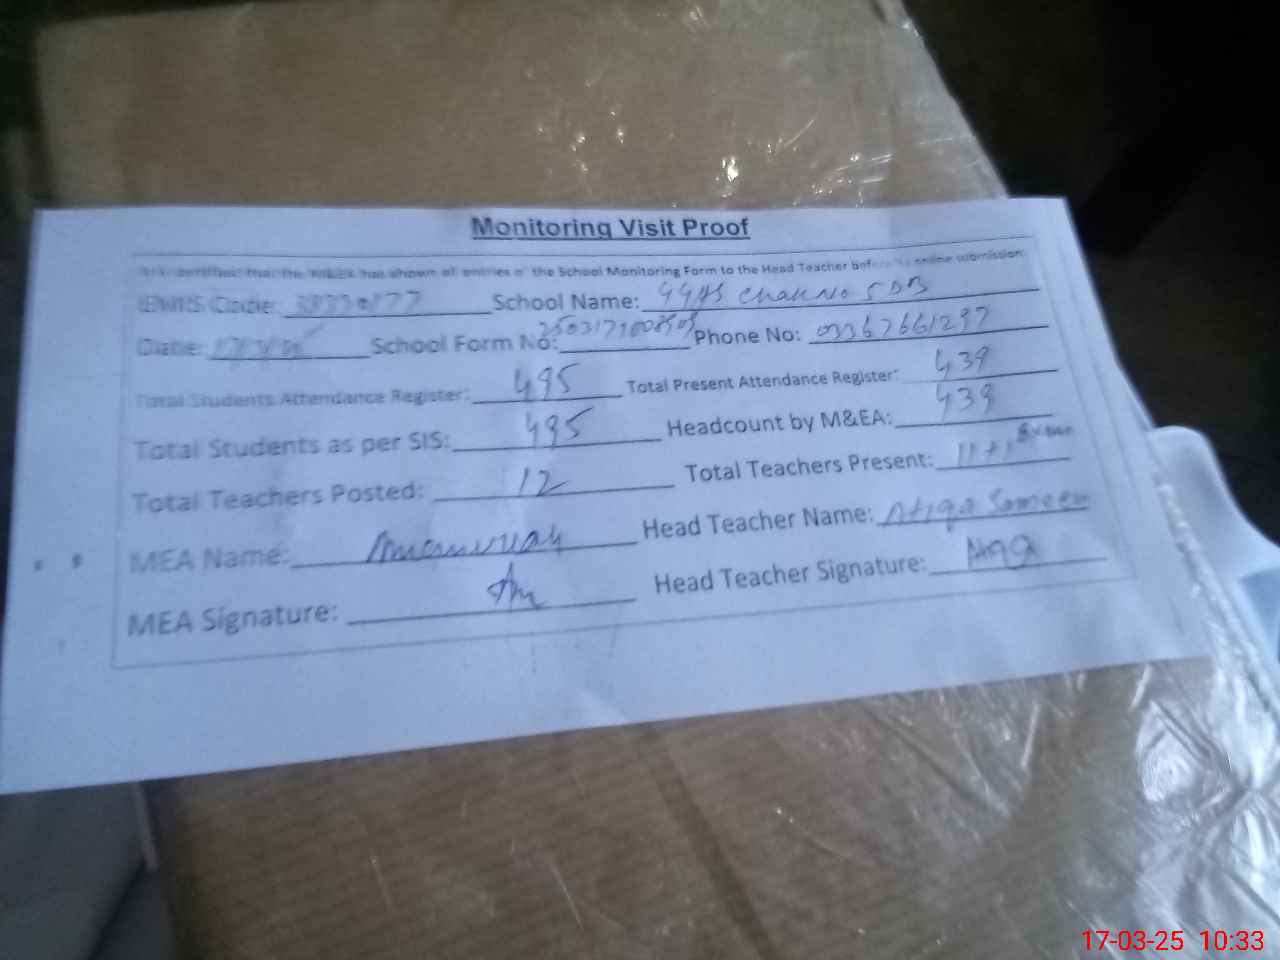 Monitoring Visit Proof
certified that the has shown all entries of the School Monitoring Form to the Head Teacher before online submission
EMIS Code: School Name: GGHS Chak No 5 DB
Date: School Form No: Phone No: 03367661297
Total Students Attendance Register: 495 Total Present Attendance Register: 439
Total Students as per SIS: 495 Headcount by M&EA: 439
Total Teachers Posted: 12 Total Teachers Present: 11+1
MEA Name: Head Teacher Name: Atiqa
MEA Signature: Head Teacher Signature:
17-03-25 10:33